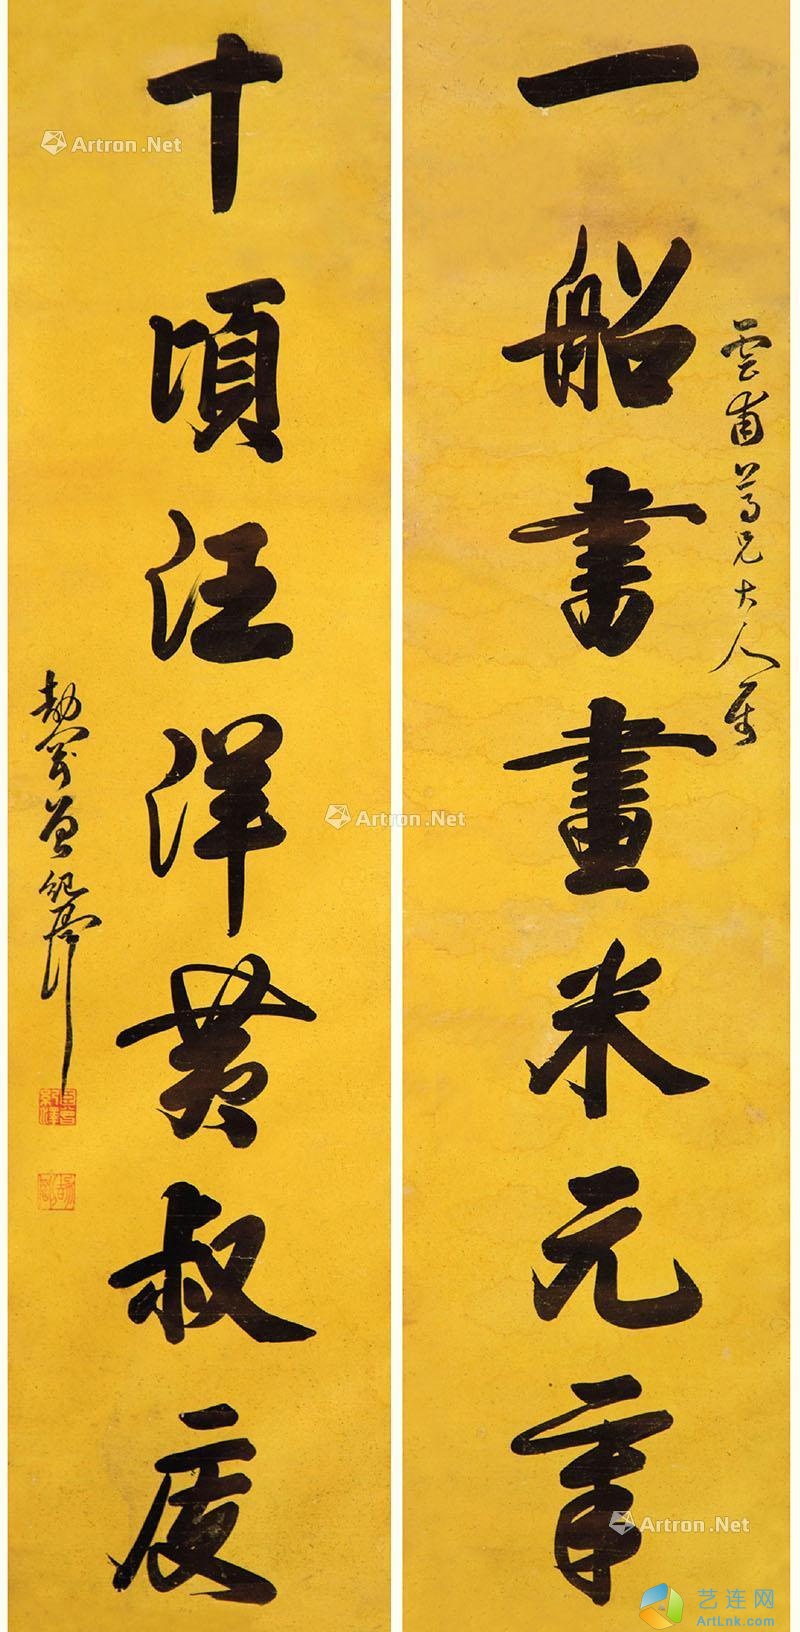 一船書畫米元章
雲甫尊兄大人属
十頃汪洋黄叔度
劼剛曾紀澤
Artron.Net
Artron.Net
Artron.Net
艺连网
ArtLnk.com